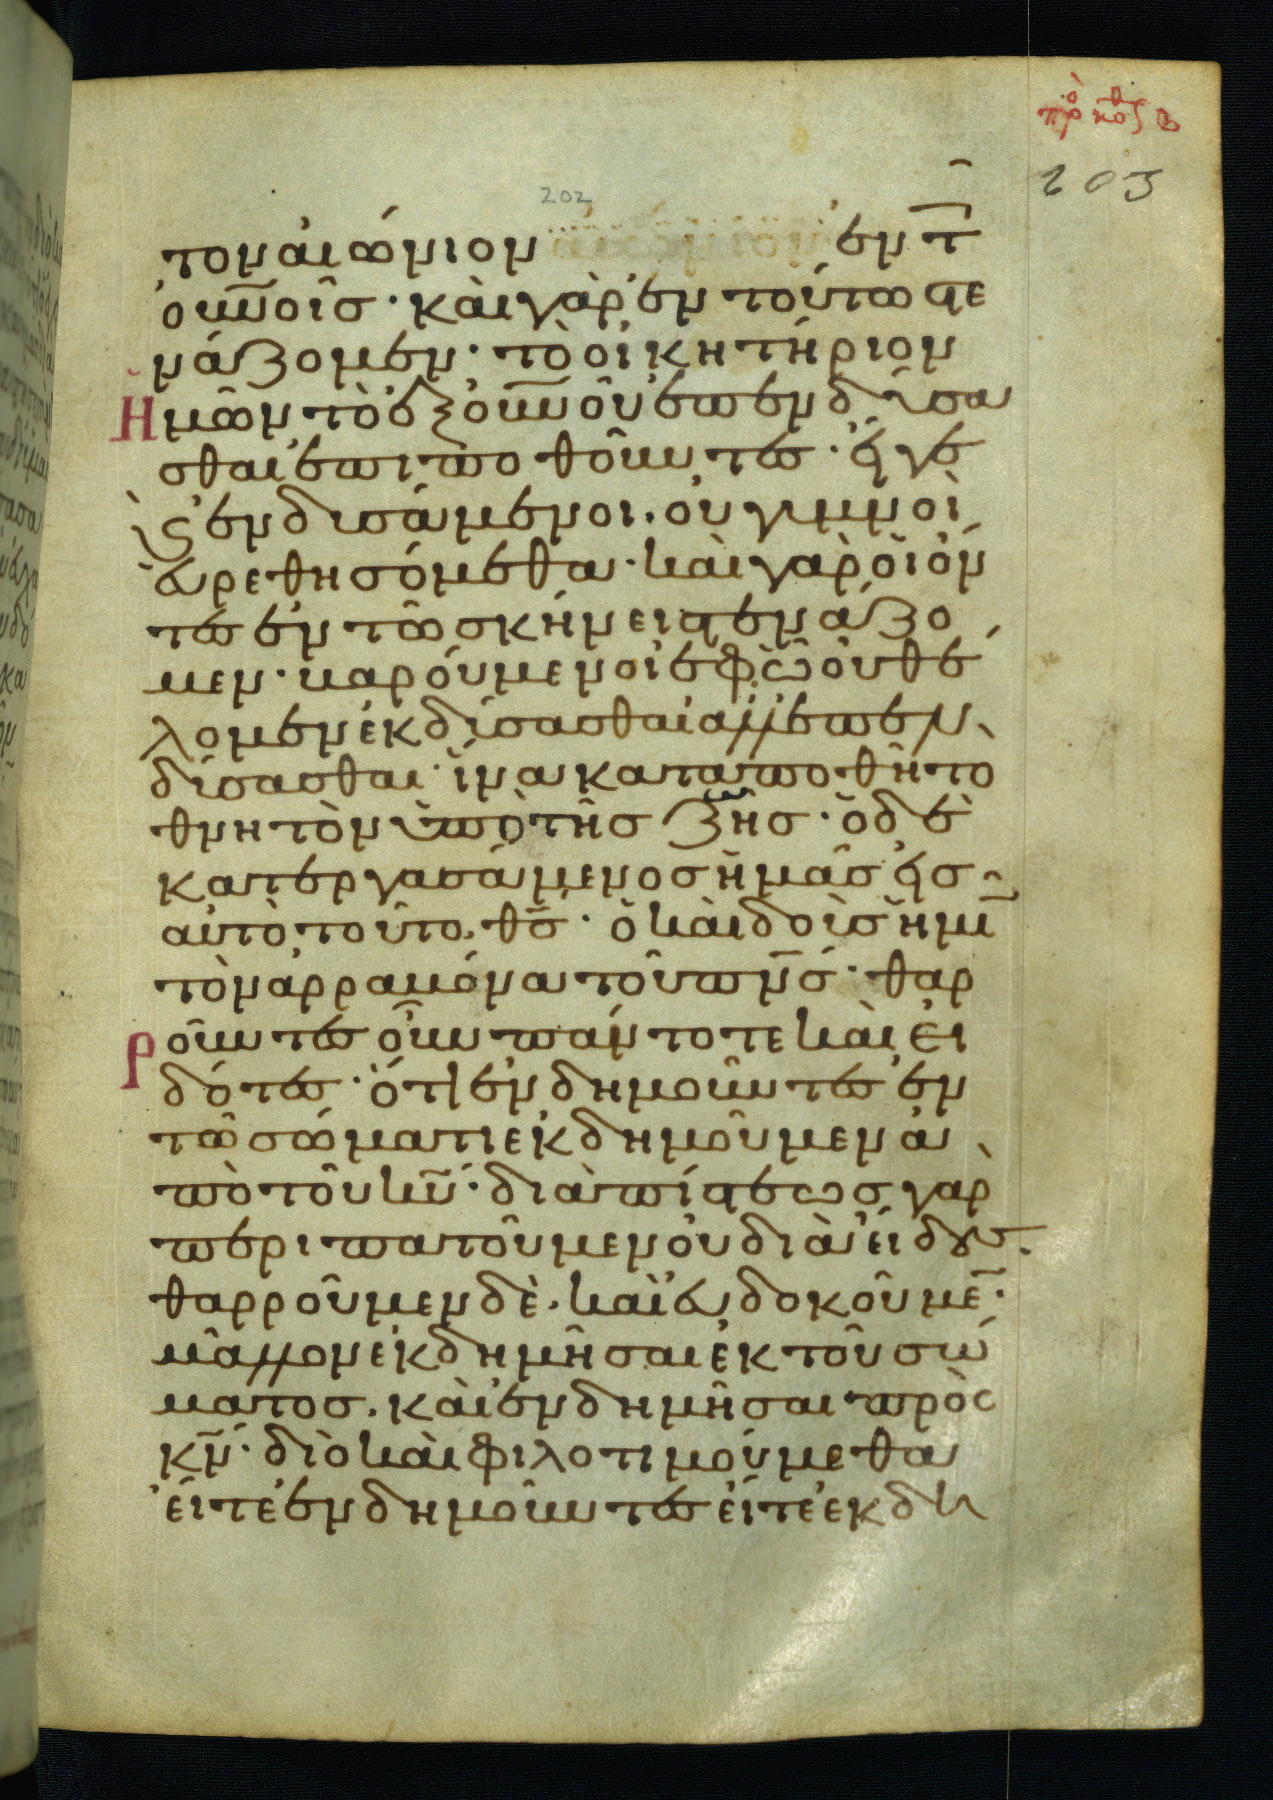 πρὸ κορ β
203
202
τον αἰώνιον ἐν τ
οὐνοῖσ · καὶ γὰρ ἐν τούτω στε
νάζομεν · τὸ οἰκητήριον
ἡμῶν τὸ ἐξ οὐνοῦ ἐπενδύσα
σθαι ἐπιποθοῦντεσ · εἴγε
κ ἐνδυσάμενοι · οὐ γυμνοὶ
εὑρεθησόμεθα · καὶ γὰρ οἱ ὄν
τεσ ἐν τῶ σκήνει στενάζο
μεν · βαρούμενοι ἐφ ὧ οὐ θέ
λομεν ἐκδύσασθαι ἀλλ ἐπεν
δύσασθαι · ἵνα καταποθῆ το
θνητὸν ὑπὸ τῆσ ζωῆσ · ὁ δὲ
κατεργασάμενοσ ἡμᾶσ εἰσ
αὐτὸ τοῦτο θσ · ὁ καὶ δοὺσ ἡμῖ
τὸν ἀρραβῶνα τοῦ πνσ · θαρ
ροῦντεσ οὖν πάντοτε καὶ εἰ
δότεσ · ὅτι ἐνδημοῦντεσ ἐν
τῶ σώματι ἐκδημοῦμεν ἀ
πὸ τοῦ κυ · διὰ πίστεωσ γὰρ
περιπατοῦμεν οὐ διὰ εἴδουσ.
θαρροῦμεν δὲ · καὶ εὐδοκοῦμε ·
μᾶλλον ἐκδημῆσαι ἐκ τοῦ σώ
ματοσ · καὶ ἐνδημῆσαι πρὸσ
κν · διὸ καὶ φιλοτιμούμεθα
εἴτε ἐνδημοῦντεσ εἴτε ἐκδη